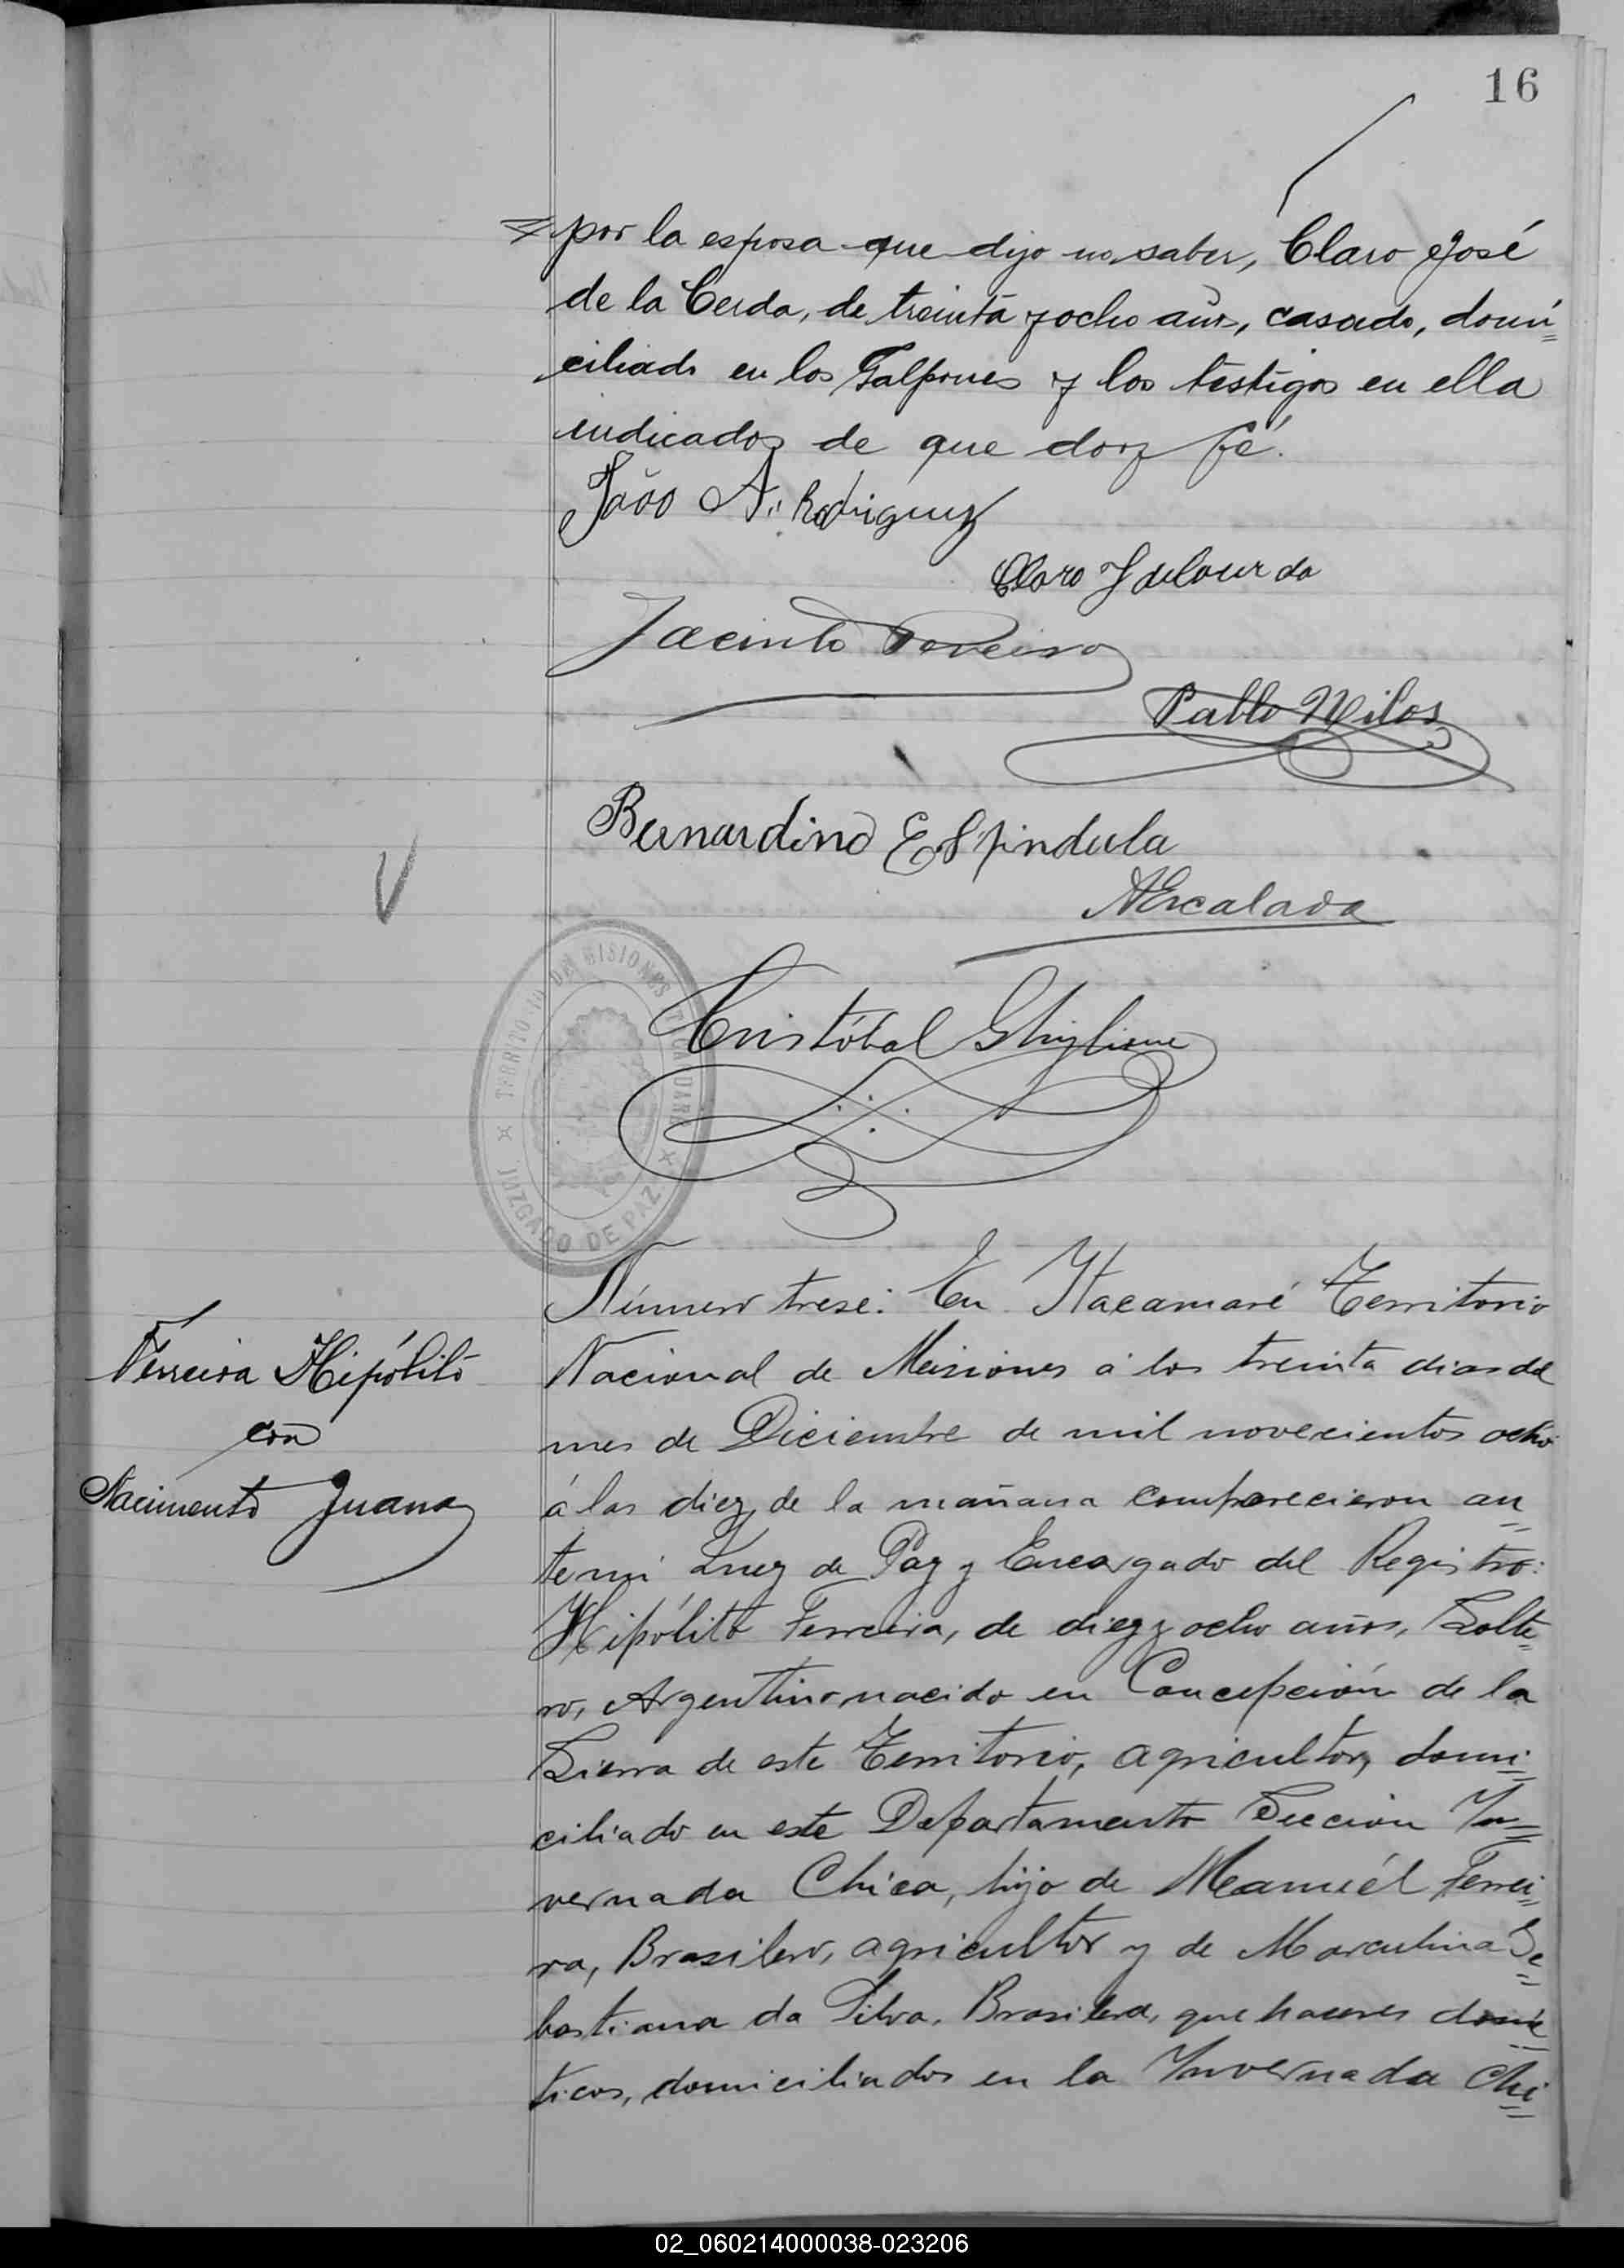 16
por la esposa que dijo no saber, Claro José
de la Cerda, de treinta y ocho años, casado, domi
ciliado en los Galpones y los testigos en ella
indicados de que doy fé.
João A. Rodriguez
Claro J delacerda
Jacinto Pereira
Pablo Milos
Bernardino ESpindula
AEscalada
Cristóbal Ghiglione
TERRITORIO DE MISIONES ITACUARÉ
JUZGADO DE PAZ
Ferreira Hipólito
con
Nacimento Juana
Número trese: En Itacamaré Territorio
Nacional de Misiones á los treinta dias del
mes de Diciembre de mil novecientos ocho
á las diez de la mañana comparecieron an
te mi Juez de Paz y Encargado del Registro:
Hipólito Ferreira, de diez y ocho años, Solte
ro, Argentino nacido en Concepción de la
Sierra de este Territorio, agricultor, domi
ciliado en este Departamento Seccion In
vernada Chica, hijo de Manuél Ferrei
ra, Brasilero, agricultor y de Marculina Se
bastiana da Silva, Brasilera, que haceres domé
ticos, domiciliados en la Invernada Chi
02_060214000038-023206